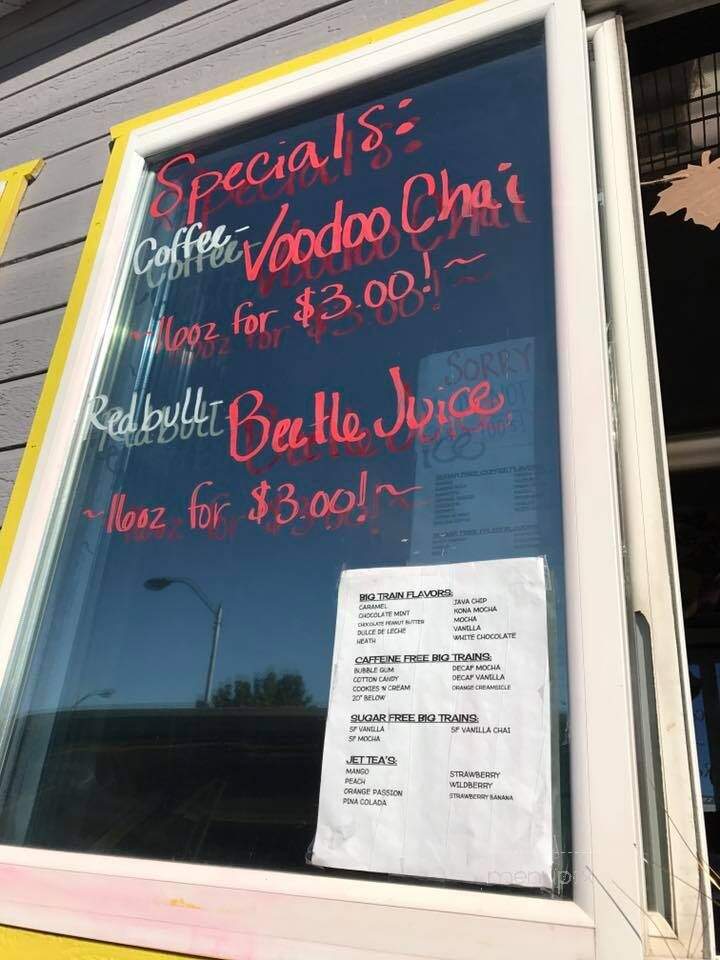 Specials:
Coffee- Voodoo Chai
~16oz for $3.00!~
Redbull- Beetle Juice
~16oz for $3.00!~
SORRY
BIG TRAIN FLAVORS:
CARAMEL
CHOCOLATE MINT
CHOCOLATE PEANUT BUTTER
DULCE DE LECHE
HEATH
JAVA CHIP
KONA MOCHA
MOCHA
VANILLA
WHITE CHOCOLATE
CAFFEINE FREE BIG TRAINS:
BUBBLE GUM
COTTON CANDY
COOKIES N CREAM
20° BELOW
DECAF MOCHA
DECAF VANILLA
ORANGE CREAMSICLE
SUGAR FREE BIG TRAINS:
SF VANILLA
SF MOCHA
SF VANILLA CHAI
JET TEA'S:
MANGO
PEACH
ORANGE PASSION
PINA COLADA
STRAWBERRY
WILDBERRY
STRAWBERRY BANANA